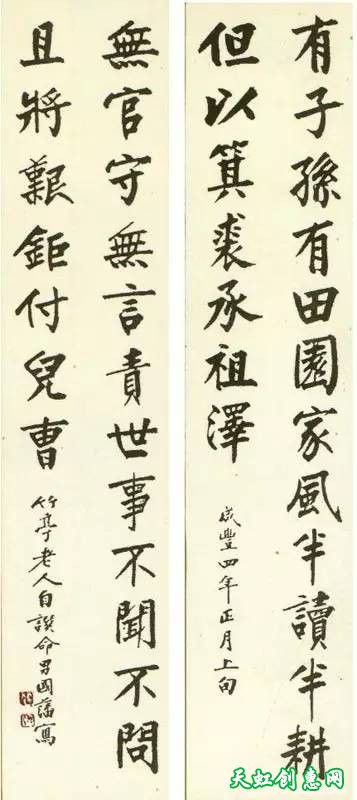 有子孫有田園家風半讀半耕
但以箕裘承祖澤
咸豐四年正月上旬
無官守無言責世事不聞不問
且將艱鉅付兒曹
竹亭老人自譔命男國藩寫
天虹创惠网